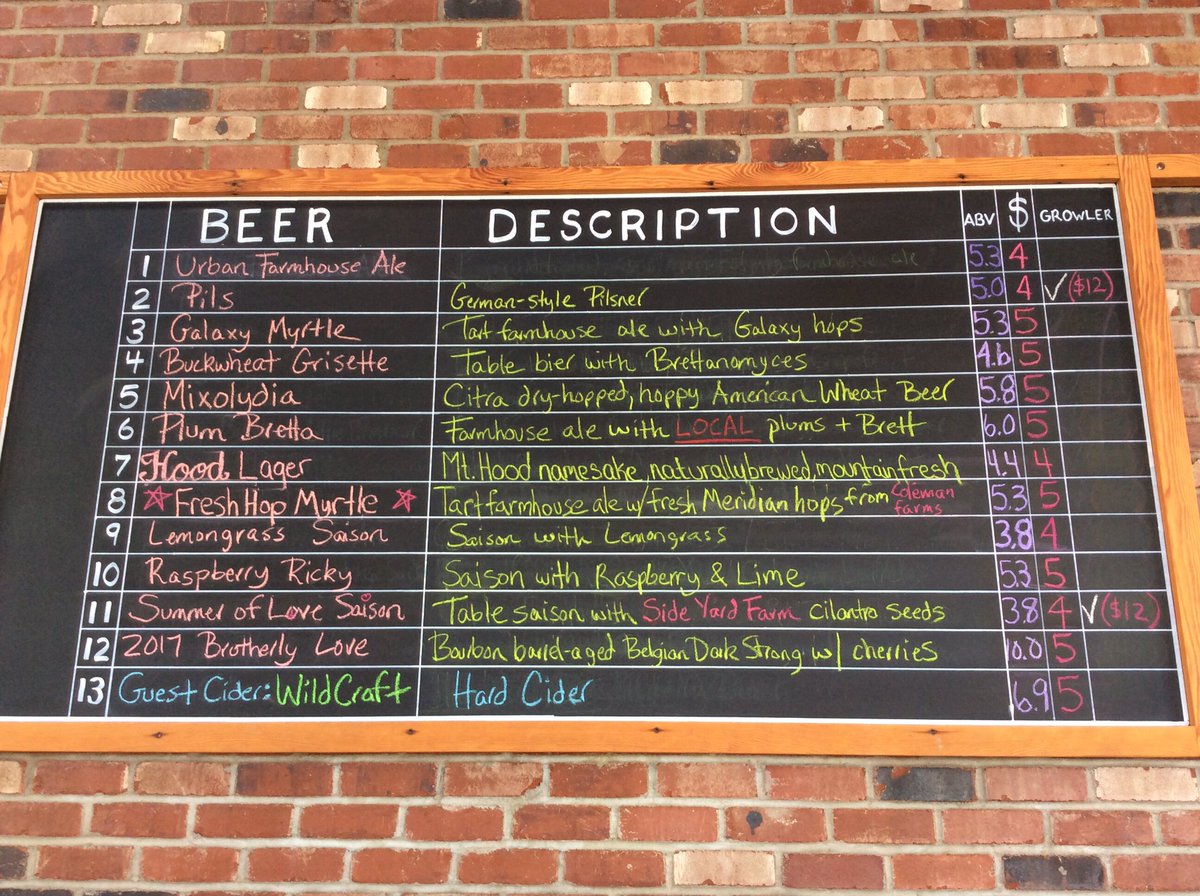 BEER DESCRIPTION ABV $ GROWLER
1 Urban Farmhouse Ale farmhouse ale 5.3 4
2 Pils German-style Pilsner 5.0 4 ✓($12)
3 Galaxy Myrtle Tart farmhouse ale with Galaxy hops 5.3 5
4 Buckwheat Grisette Table bier with Brettanomyces 4.6 5
5 Mixolydia Citra dry-hopped, hoppy American Wheat Beer 5.8 5
6 Plum Bretta Farmhouse ale with LOCAL plums + Brett 6.0 5
7 Hood Lager Mt. Hood namesake, naturally brewed, mountain fresh 4.4 4
8 ☆ Fresh Hop Myrtle ☆ Tart farmhouse ale w/ fresh Meridian hops from Coleman farms 5.3 5
9 Lemongrass Saison Saison with Lemongrass 3.8 4
10 Raspberry Ricky Saison with Raspberry & Lime 5.3 5
11 Summer of Love Saison Table saison with Side Yard Farm cilantro seeds 3.8 4 ✓($12)
12 2017 Brotherly Love Bourbon barrel-aged Belgian Dark Strong w/ cherries 10.0 5
13 Guest Cider: WildCraft Hard Cider 6.9 5